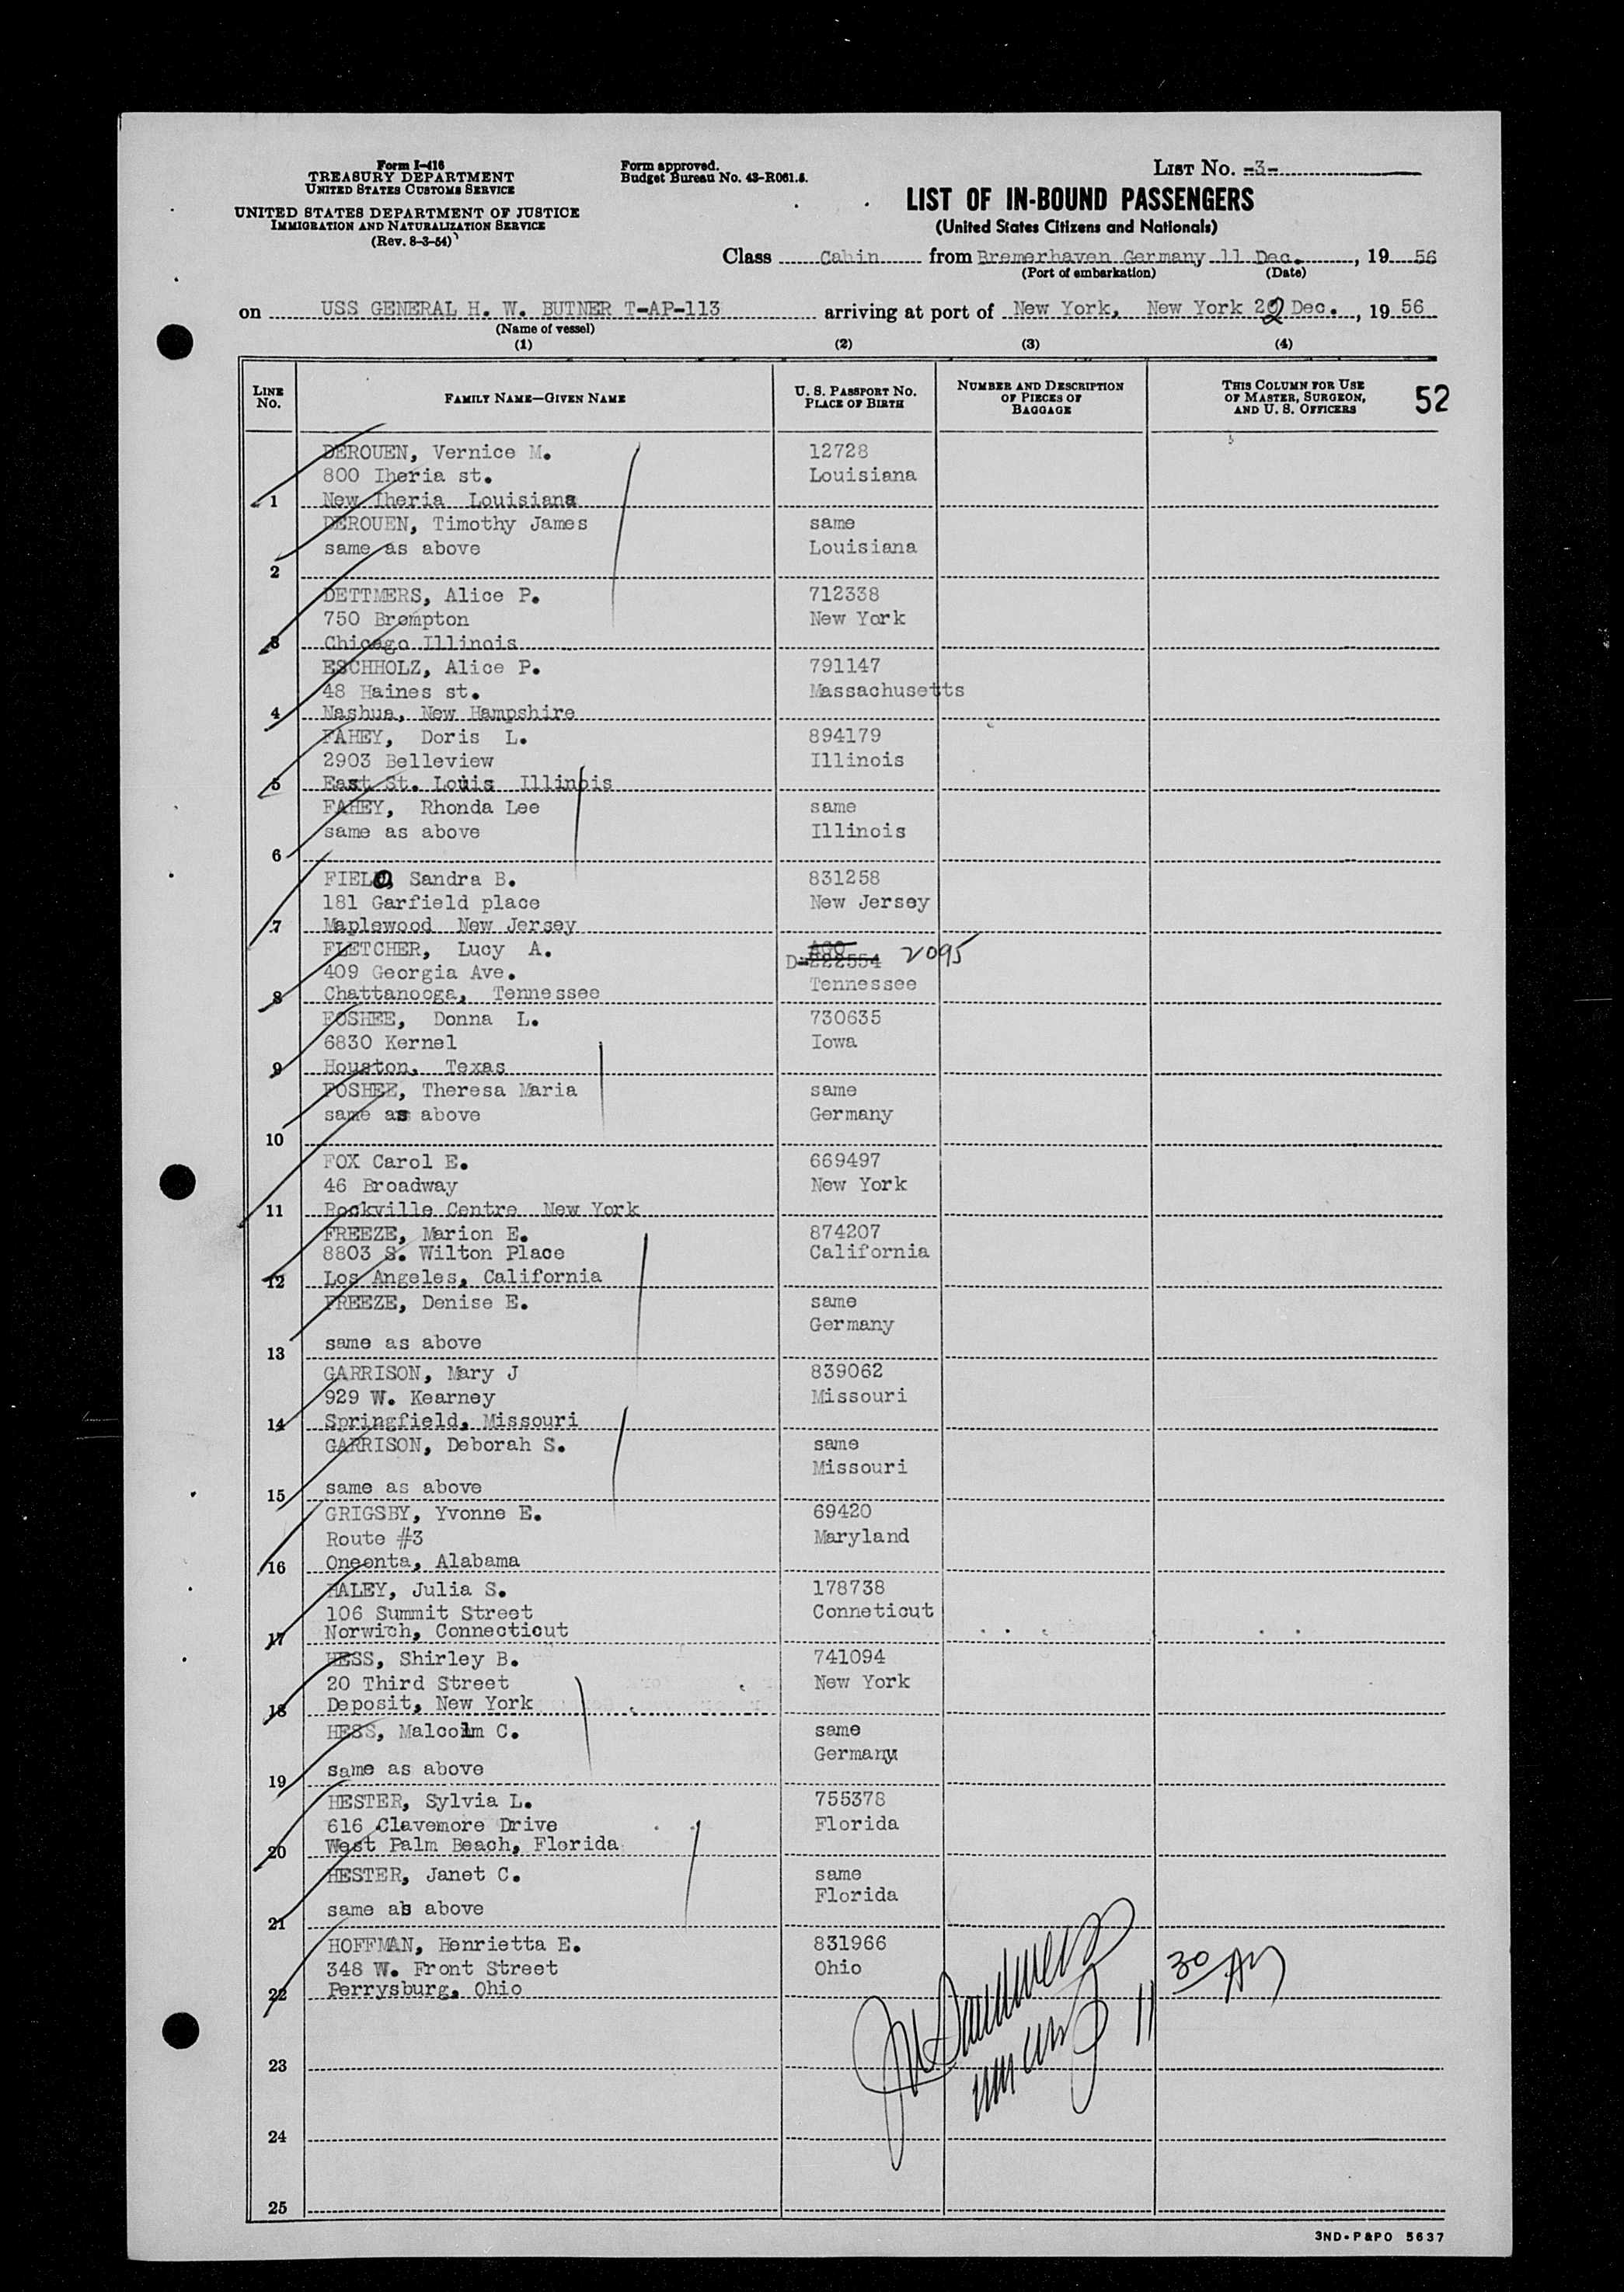 Form I-416
TREASURY DEPARTMENT
UNITED STATES CUSTOMS SERVICE
UNITED STATES DEPARTMENT OF JUSTICE
IMMIGRATION AND NATURALIZATION SERVICE
(Rev. 8-3-54)
Form approved.
Budget Bureau No. 43-R061.5.
LIST No. -3-
LIST OF IN-BOUND PASSENGERS
(United States Citizens and Nationals)
Class Cabin from Bremerhaven Germany 11 Dec. , 19 56
(Port of embarkation) (Date)
on USS GENERAL H. W. BUTNER T-AP-113 arriving at port of New York, New York 22 Dec. , 19 56
(Name of vessel)
(1) (2) (3) (4)
LINE No. FAMILY NAME—GIVEN NAME U. S. PASSPORT No. PLACE OF BIRTH NUMBER AND DESCRIPTION OF PIECES OF BAGGAGE THIS COLUMN FOR USE OF MASTER, SURGEON, AND U. S. OFFICERS 52
DEROUEN, Vernice M. 12728
800 Iberia st. Louisiana
1 New Iberia Louisiana
DEROUEN, Timothy James same
same as above Louisiana
2
DETTMERS, Alice P. 712338
750 Brompton New York
3 Chicago Illinois
ESCHHOLZ, Alice P. 791147
48 Haines st. Massachusetts
4 Nashua, New Hampshire
FAHEY, Doris L. 894179
2903 Belleview Illinois
5 East St. Louis Illinois
FAHEY, Rhonda Lee same
same as above Illinois
6
FIELD, Sandra B. 831258
181 Garfield place New Jersey
7 Maplewood New Jersey
FLETCHER, Lucy A. AGO
409 Georgia Ave. D-222554 2095
8 Chattanooga, Tennessee Tennessee
FOSHEE, Donna L. 730635
6830 Kernel Iowa
9 Houston, Texas
FOSHEE, Theresa Maria same
same as above Germany
10
FOX Carol E. 669497
46 Broadway New York
11 Rockville Centre New York
FREEZE, Marion E. 874207
8803 S. Wilton Place California
12 Los Angeles, California
FREEZE, Denise E. same
Germany
13 same as above
GARRISON, Mary J 839062
929 W. Kearney Missouri
14 Springfield, Missouri
GARRISON, Deborah S. same
Missouri
15 same as above
GRIGSBY, Yvonne E. 69420
Route #3 Maryland
16 Oneonta, Alabama
HALEY, Julia S. 178738
106 Summit Street Conneticut
17 Norwich, Connecticut
HESS, Shirley B. 741094
20 Third Street New York
18 Deposit, New York
HESS, Malcolm C. same
Germany
19 same as above
HESTER, Sylvia L. 755378
616 Clavemore Drive Florida
20 West Palm Beach, Florida
HESTER, Janet C. same
Florida
21 same as above
HOFFMAN, Henrietta E. 831966
348 W. Front Street Ohio
22 Perrysburg, Ohio
11 30 AM
23
24
25
3ND-P&PO 5637